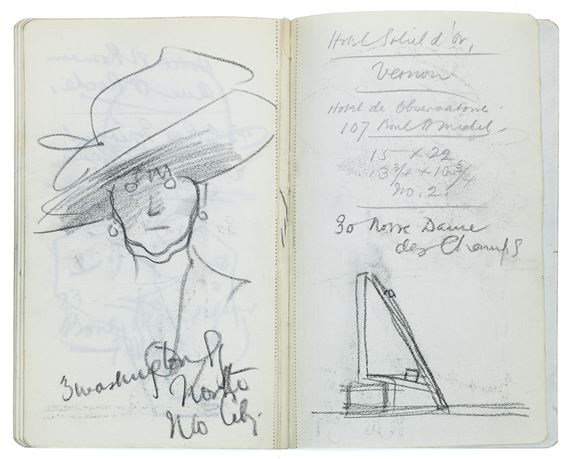 3 Washington Sq
North
Hotel Soleil d'Or,
Vernon
Hotel de Observatoire.
107 Boul St Michel.
15 x 22
13 3/4 + 10 3/4
No. 2.
30 Notre Dame
des Champs